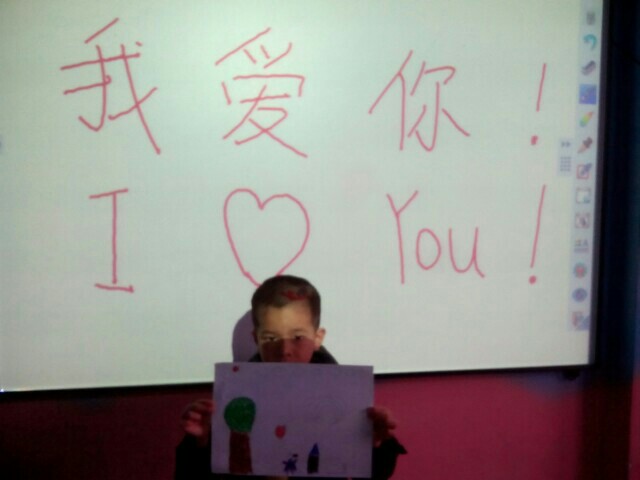 我爱你！
I ♡ You!